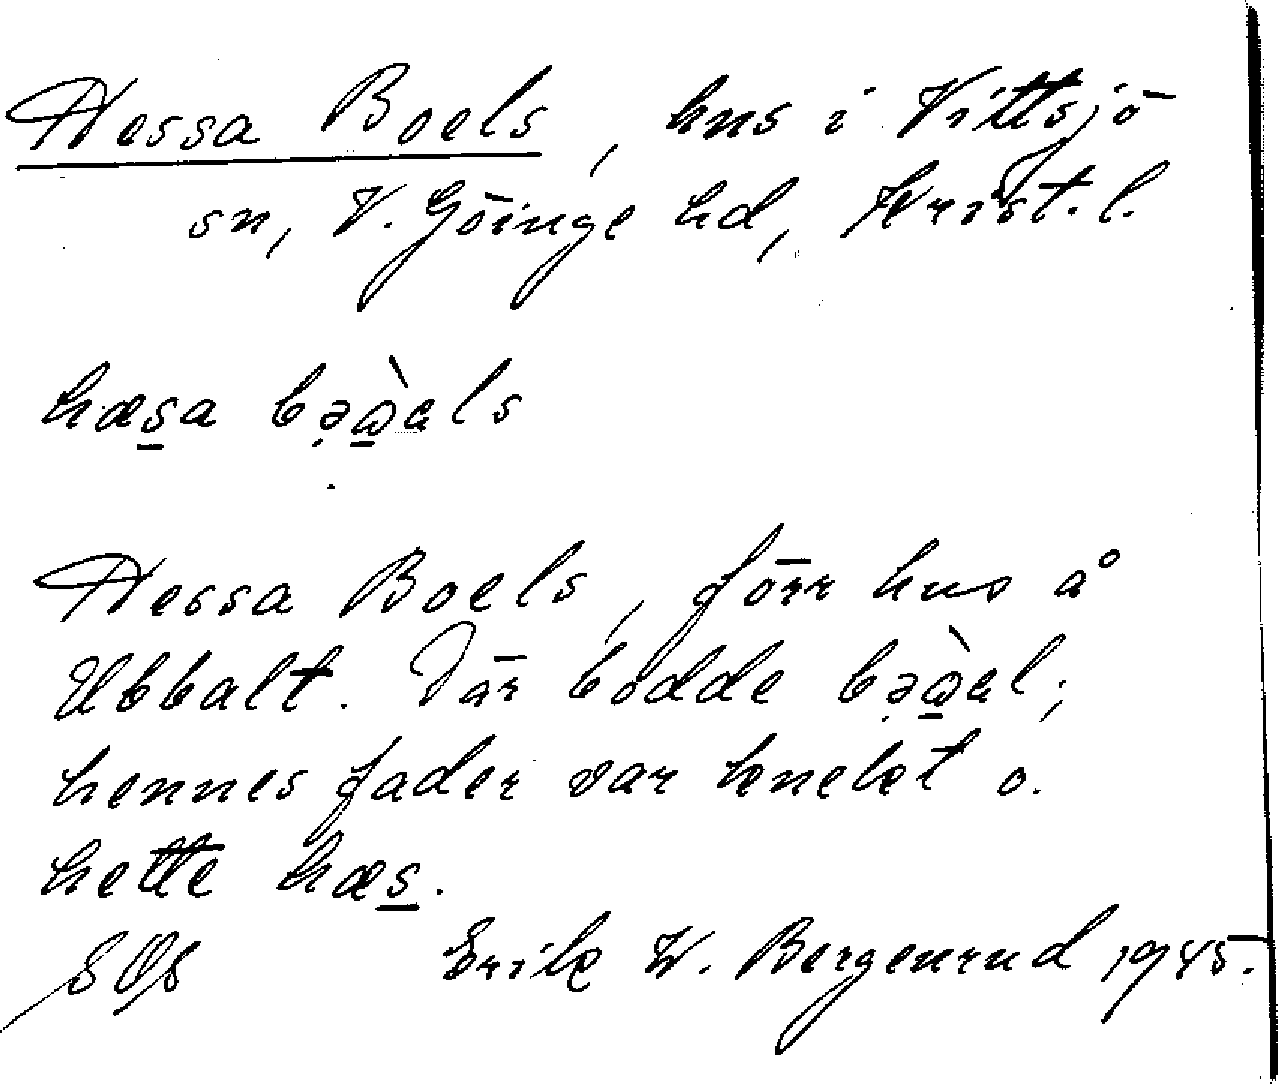 Hessa Boels, hus i Vittsjö
sn, V. Göinge hd, Krist. l.
hæsa bəωels
Hessa Boels, förr hus å
Ubbalt. Där bodde bəωel;
hennes fader var knekt o.
hette hæs.
Erik W. Bergenrud 1945.